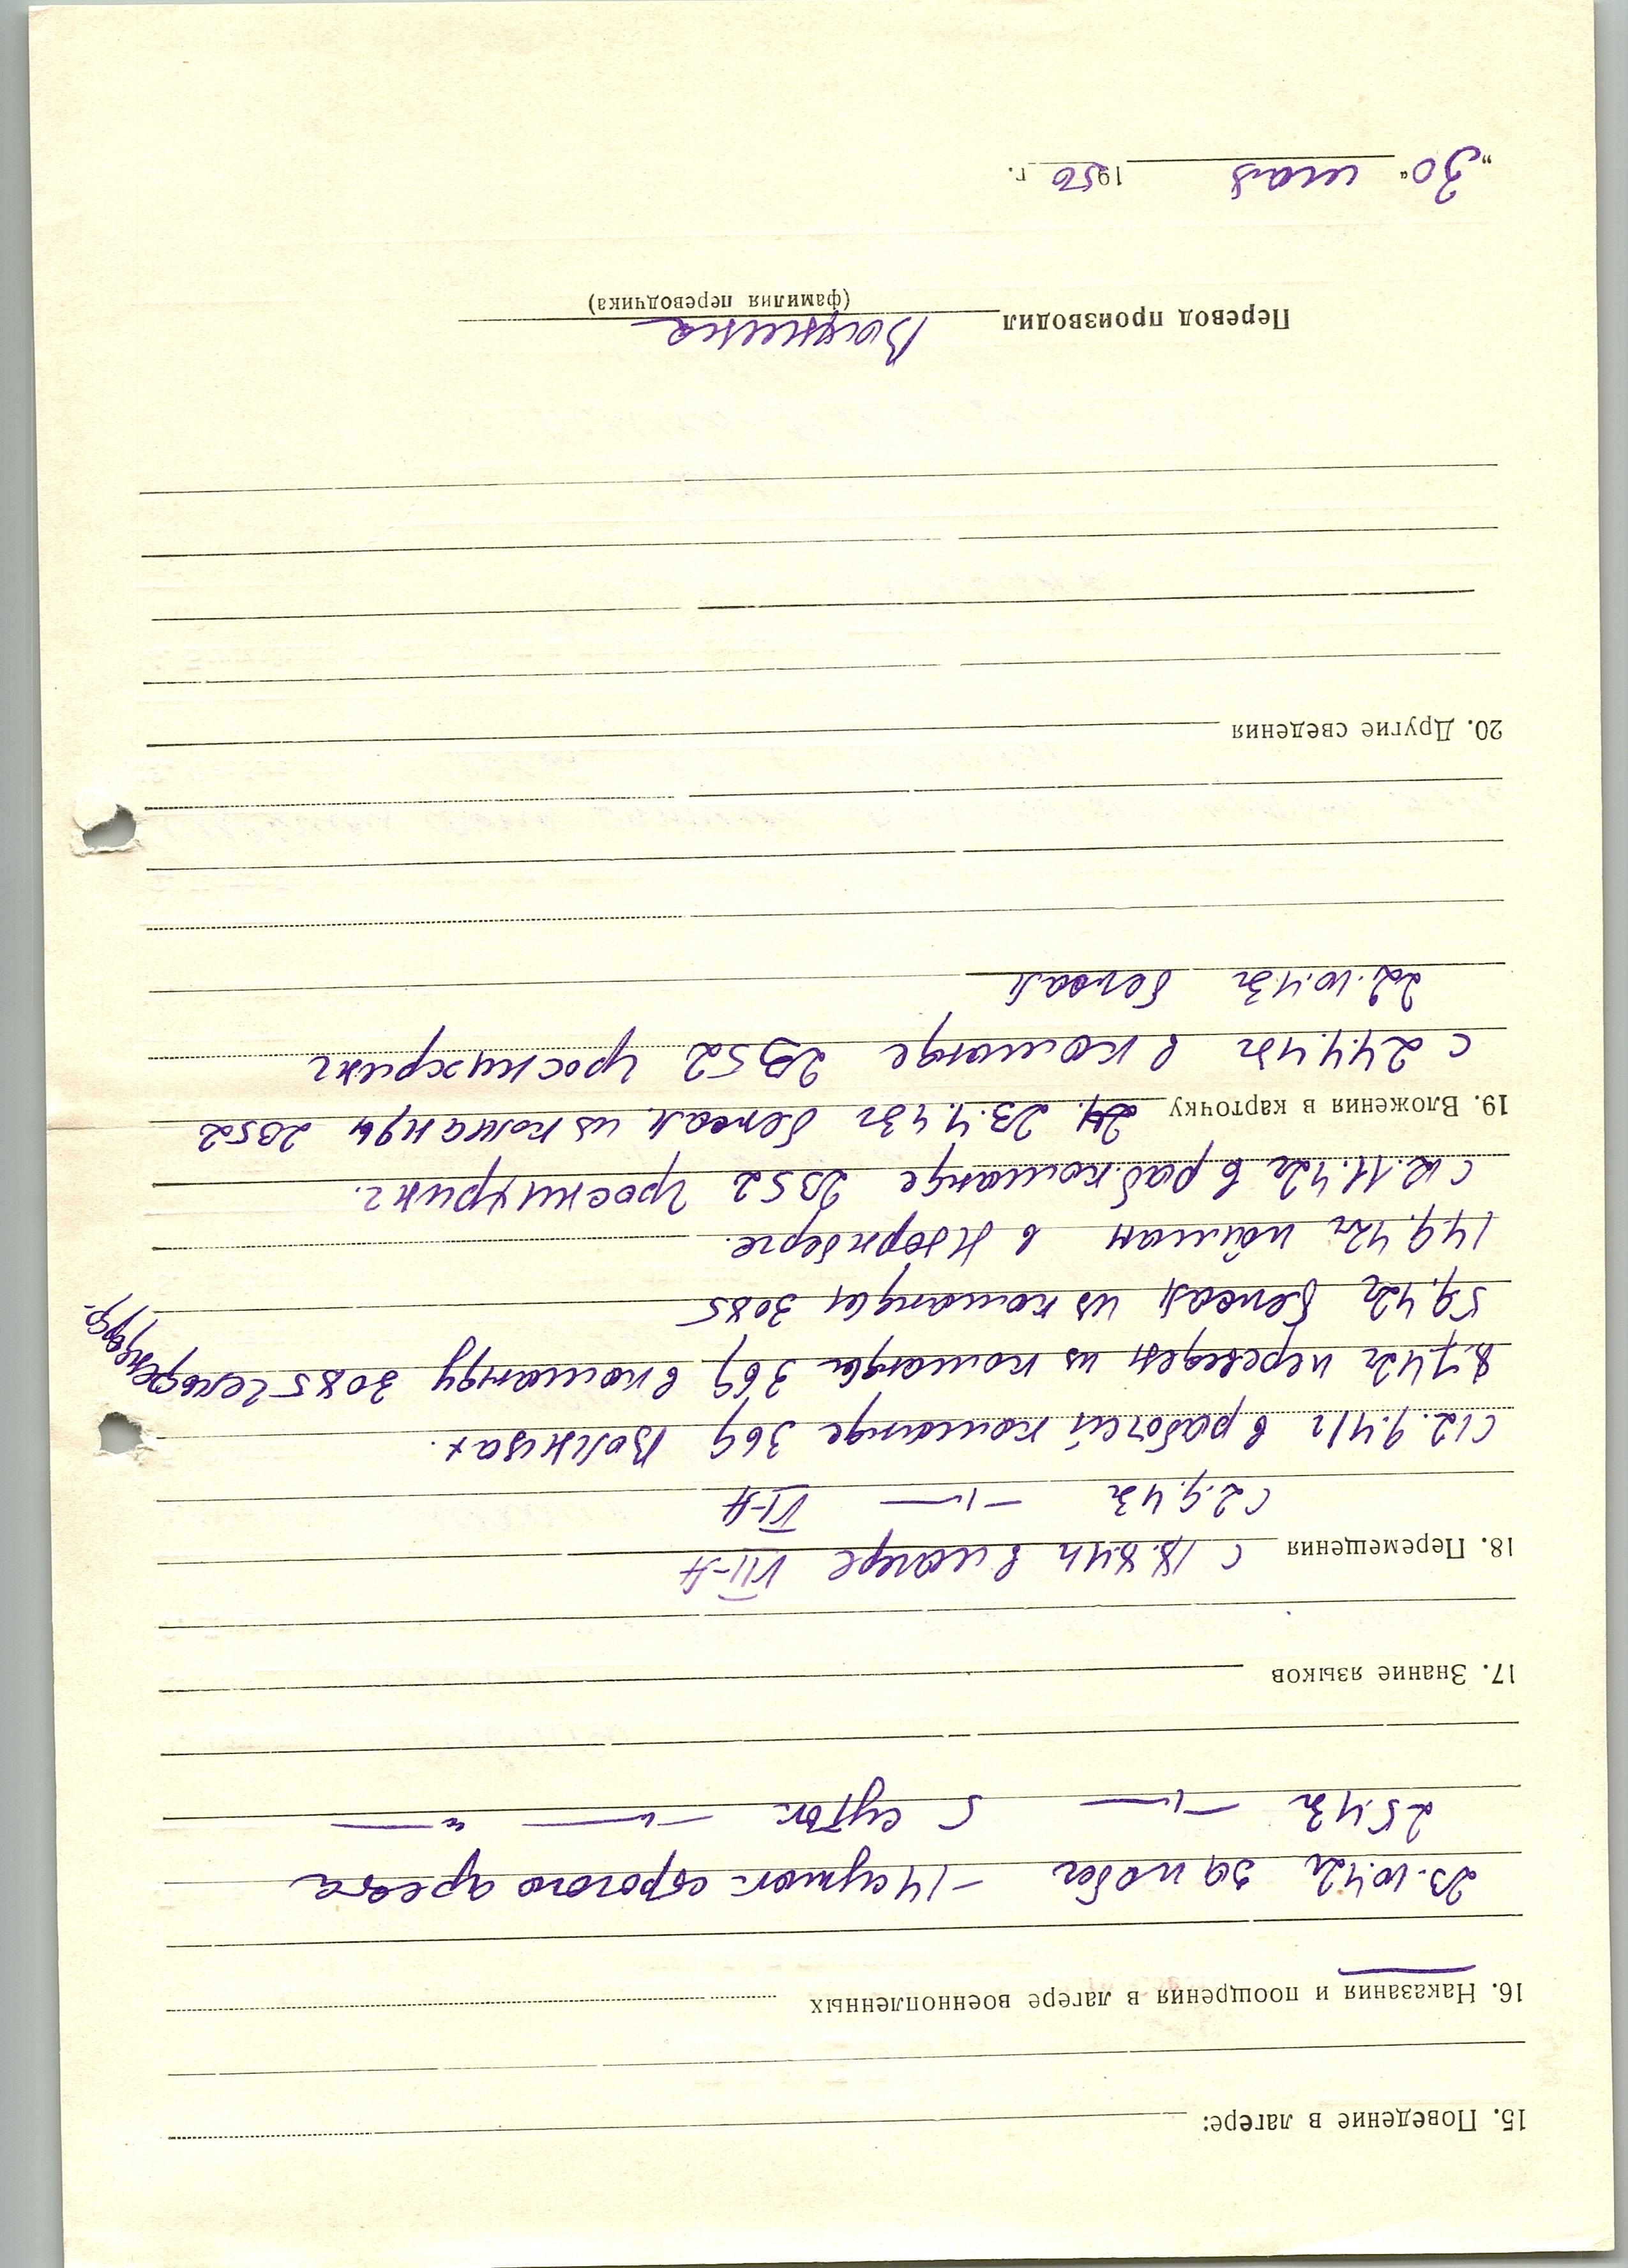 15. Поведение в лагере:
16. Наказания и поощрения в лагере военнопленных
23.10.42г за побег – 14 суток строгого ареста
2.5.43г —„— 5 суток —„— —„—
17. Знание языков
18. Перемещения С 18.8.41г в лагере VII-А
С 2.9.43г —„— VI-А
С 12.9.41г в рабочей команде 369
8.7.42г переведен из команды 369 в команду 3085
5.9.42г бежал из команды 3085
14.9.42г пойман в Нюрнберге.
С 12.11.42г в раб. команде 2352
19. Вложения в карточку 23.4.43г бежал из команды 2352
С 24.4.43г в команде 2352
22.10.43г бежал
20. Другие сведения
Перевод производил
(фамилия переводчика)
„30“ мая 1950 г.